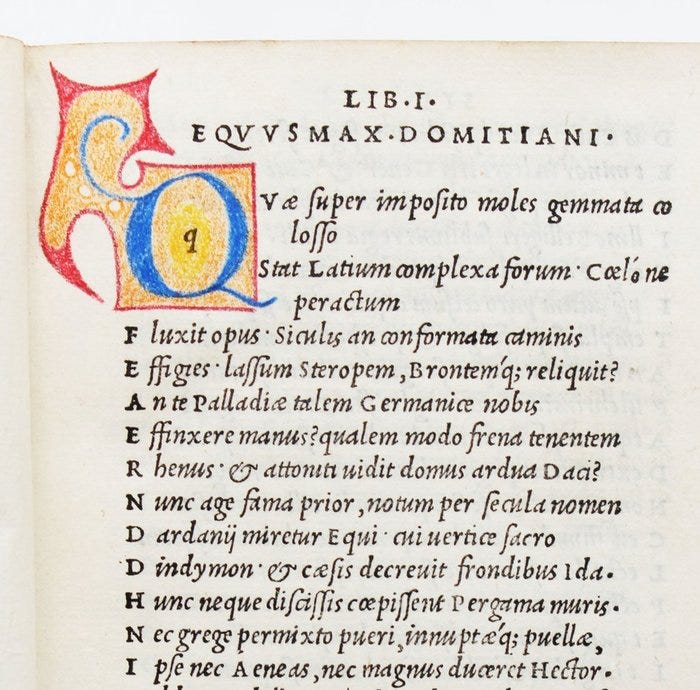 LIB·I·
EQVVS MAX·DOMITIANI·
q
Væ super imposito moles gemmata co
losso
Stat Latium complexa forum· Cœlóne
peractum
F luxit opus· Siculis an conformata caminis
E ffigies· lassum Steropem, Brontemq́; reliquit?
A n te Palladiæ talem Germanice nobis
E ffinxere manus? qualem modo frena tenentem
R henus· & attoniti uidit domus ardua Daci?
N unc age fama prior, notum per secula nomen
D ardanij miretur Equi· cui uertice sacro
D indymon· & cæsis decreuit frondibus Ida.
H unc neque discissis cœpissent Pergama muris.
N ec grege permixto pueri, innuptæq́; puellæ,
I pse nec Aeneas, nec magnus duceret Hector.